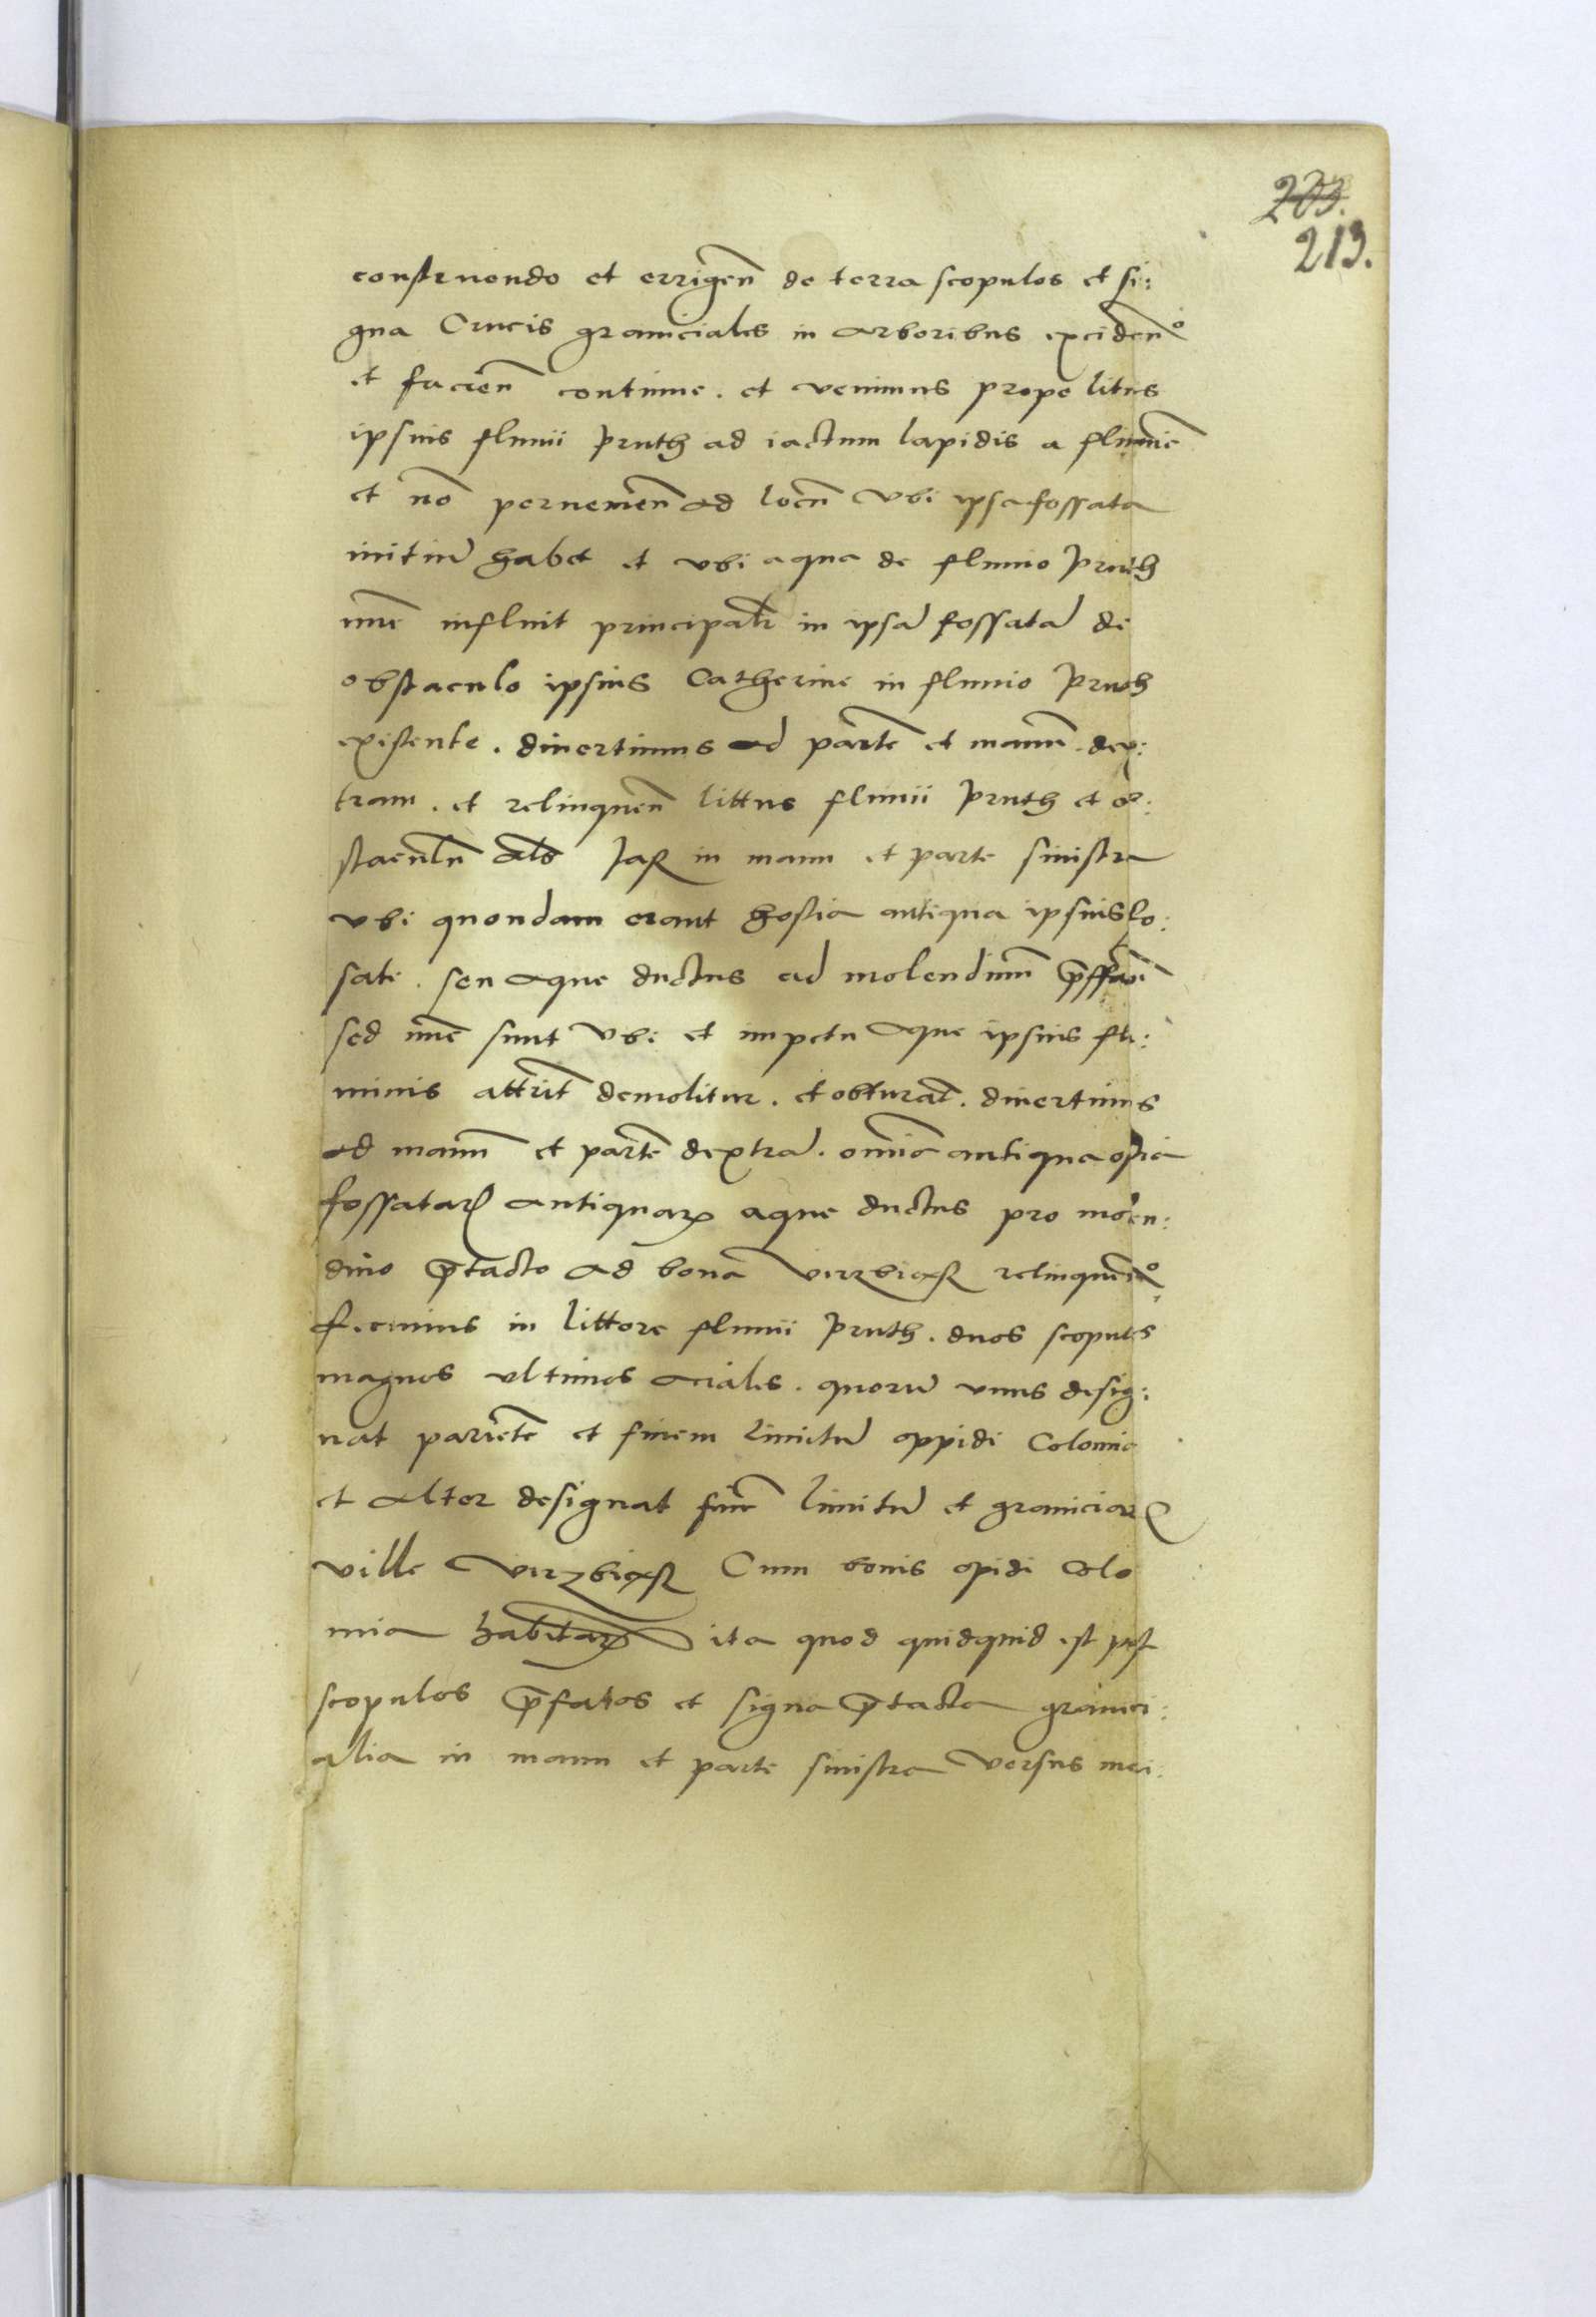 203.
213.
construendo et errigen̄ de terra scopulos et si:
gna Crucis graniciales in arboribus exciden̄º
et facien̄ continue. et venimus prope litus
ipsius fluuii Pruth ad iactum lapidis a flumiē
et nō peruenien̄ ad locū vbi ipsa fossata
initiū habet et vbi aqua de fluuio Pruth
nūc influit principalr̄ in ipsā fossatā de
obstaculo ipsius Catherine in fluuio Pruth
existente. diuertimus ad partē et manū dex:
tram. et relinquen̄ littus fluuii Pruth et ob:
staculū als Jaz in manu et parte sinistra
vbi quondam erant hostia antiqua ipsius fo:
sate. seu aque ductus ad molendinū
sed nūc sunt vbi et impetu aque ipsius flu:
minis demolitur. et obturat̄. diuertimus
ad manū et partē dextrā. omīa antiqua ostia
fossatarꝝ antiquarꝝ aque ductus pro molen:
dino p̄tacto ad bona relinquen̄º
fecimus in littore fluuii Pruth. duos scopulos
magnos vltimos aciales. quorū vnus desig:
nat parietē et finem limitū oppidi Colomia
et alter designat finē limitū et graniciarꝝ
ville Cum bonis opidi Colo
mia habitarꝝ ita quod quidquid est post
scopulos p̄fatos et signa p̄tacta granici:
alia in manu et parte sinistra versus mei: